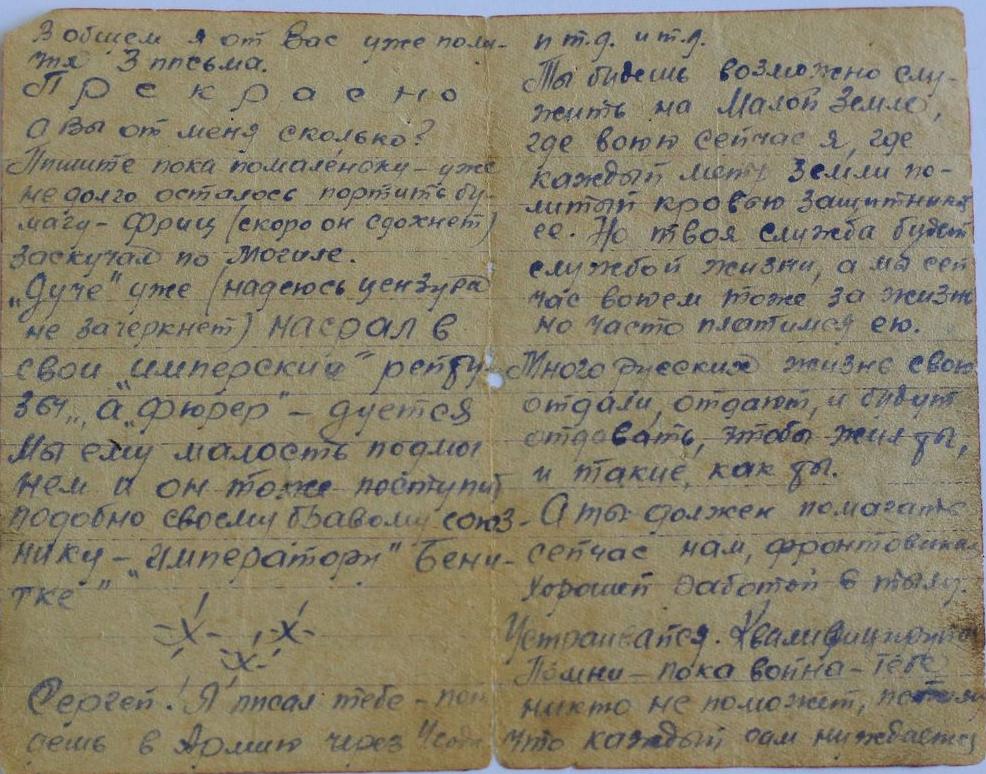 В общем я от Вас уже полу-
чил 3 письма.
Прекрасно
А Вы от меня сколько?
Пишите пока помаленьку - уже
не долго осталось портить бу-
магу - Фриц (скоро он сдохнет)
заскучал по могиле.
"Дуче" уже (надеюсь цензура
не зачеркнет) насрал в
свои "имперский" рейту-
зы", а "фюрер" - дуется
Мы ему малость подмог
нем и он тоже поступит
подобно своему бравому союз-
нику - "императору" Бени-
тке"
Сергей! Я писал тебе - пой
дешь в Армию через
и т.д. и т.д.
Ты будешь возможно слу-
жить на Малой Земле,
где воюю сейчас я, где
каждый метр земли по-
литый кровью защитника
ее. Но твоя служба будет
службой жизни, а мы сей
час воюем тоже за жизнь
но часто платимся ею.
Много русских жизнь свою
отдали, отдают, и будут
отдавать, чтобы жил ты,
и такие, как ты.
А ты должен помагать
сейчас нам, фронтовикам
хорошей работой в тылу.
Устраивайся.
Помни - пока война - тебе
никто не поможет, потому
что каждый сам нуждается